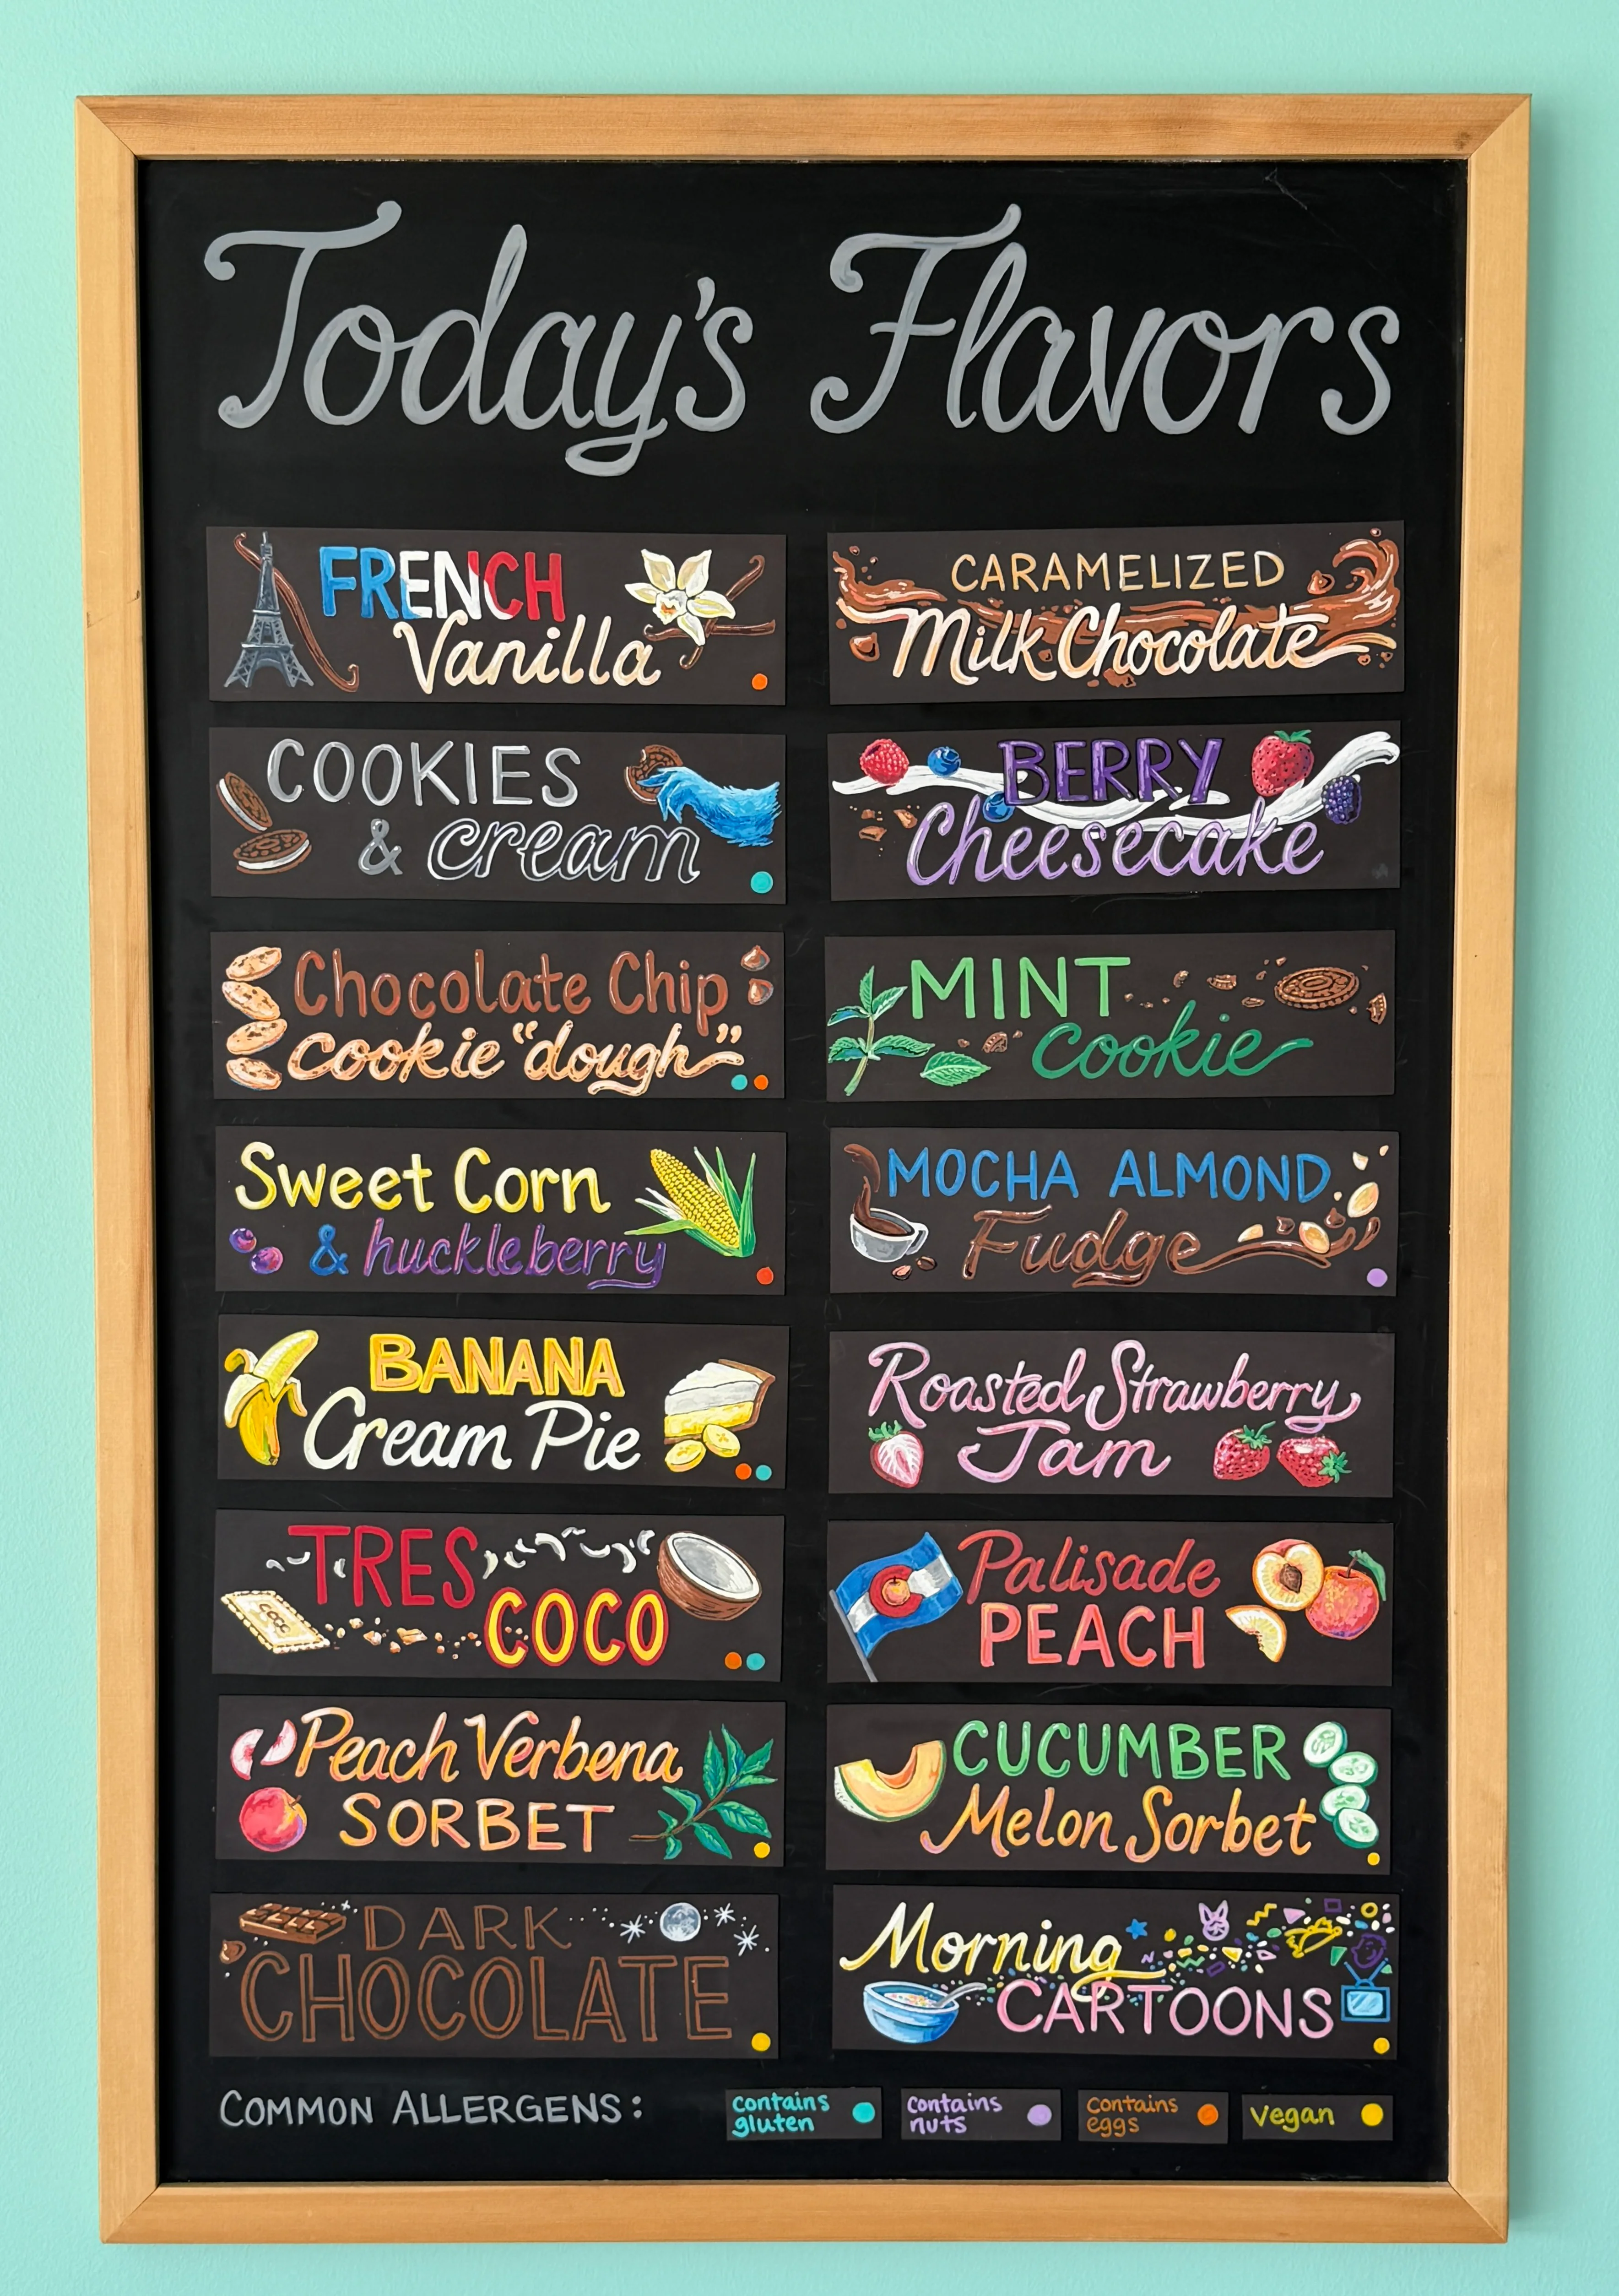 Today's Flavors
FRENCH
Vanilla
CARAMELIZED
Milk Chocolate
COOKIES
& cream
BERRY
Cheesecake
Chocolate Chip
cookie "dough"
MINT
cookie
Sweet Corn
& huckleberry
MOCHA ALMOND
Fudge
BANANA
Cream Pie
Roasted Strawberry
Jam
TRES
COCO
Palisade
PEACH
Peach Verbena
SORBET
CUCUMBER
Melon Sorbet
DARK
CHOCOLATE
Morning
CARTOONS
COMMON ALLERGENS:
contains
gluten
contains
nuts
contains
eggs
vegan